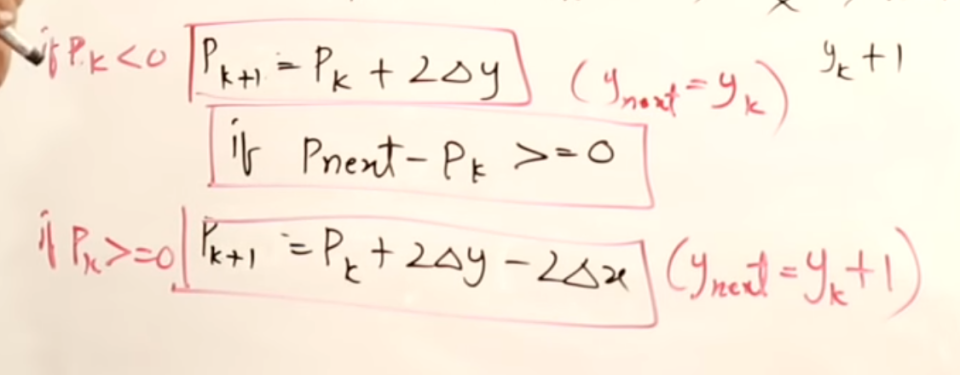 if Pk < 0 Pk+1 = Pk + 2Δy (ynext = yk) yk + 1
if Pnext - Pk >= 0
if Pk >= 0 Pk+1 = Pk + 2Δy - 2Δx (ynext = yk + 1)